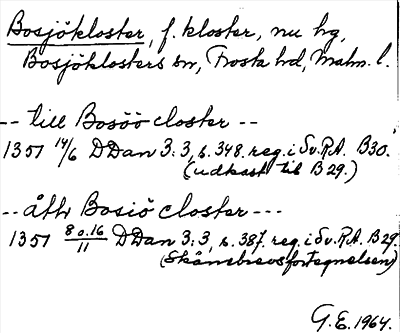 Bosjökloster, f. kloster, nu hg,
Bosjöklosters sn, Frosta hd, Malm. l.
-- till Bosöö closter --
1351 14/6 DDan 3:3, s. 348. reg. i Sv.R.A. B30.
(udkast til B29.)
-- åthr Bosiö closter ---
1351 8 o. 16/11 DDan 3:3, s. 387. reg. i Sv.R.A. B29.
(Skånebrevsfortegnelsen)
G.E. 1964.